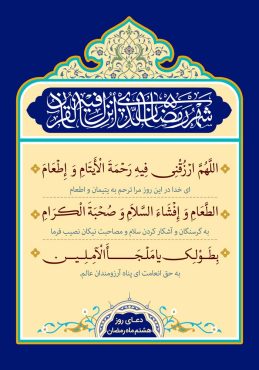 شهر رمضان الذی انزل فیه القرآن
اللَّهُمَّ ارْزُقْنِی فِیهِ رَحْمَةَ الْأَیْتَامِ وَ إِطْعَامَ
ای خدا در این روز مرا ترحم به یتیمان و اطعام
الطَّعَامِ وَ إِفْشَاءَ السَّلاَمِ وَ صُحْبَةَ الْکِرَامِ
به گرسنگان و آشکار کردن سلام و مصاحبت نیکان نصیب فرما
بِطَوْلِکَ یَا مَلْجَأَ الْآمِلِینَ
به حق انعامت ای پناه آرزومندان عالم.
دعای روز
هشتم ماه رمضان